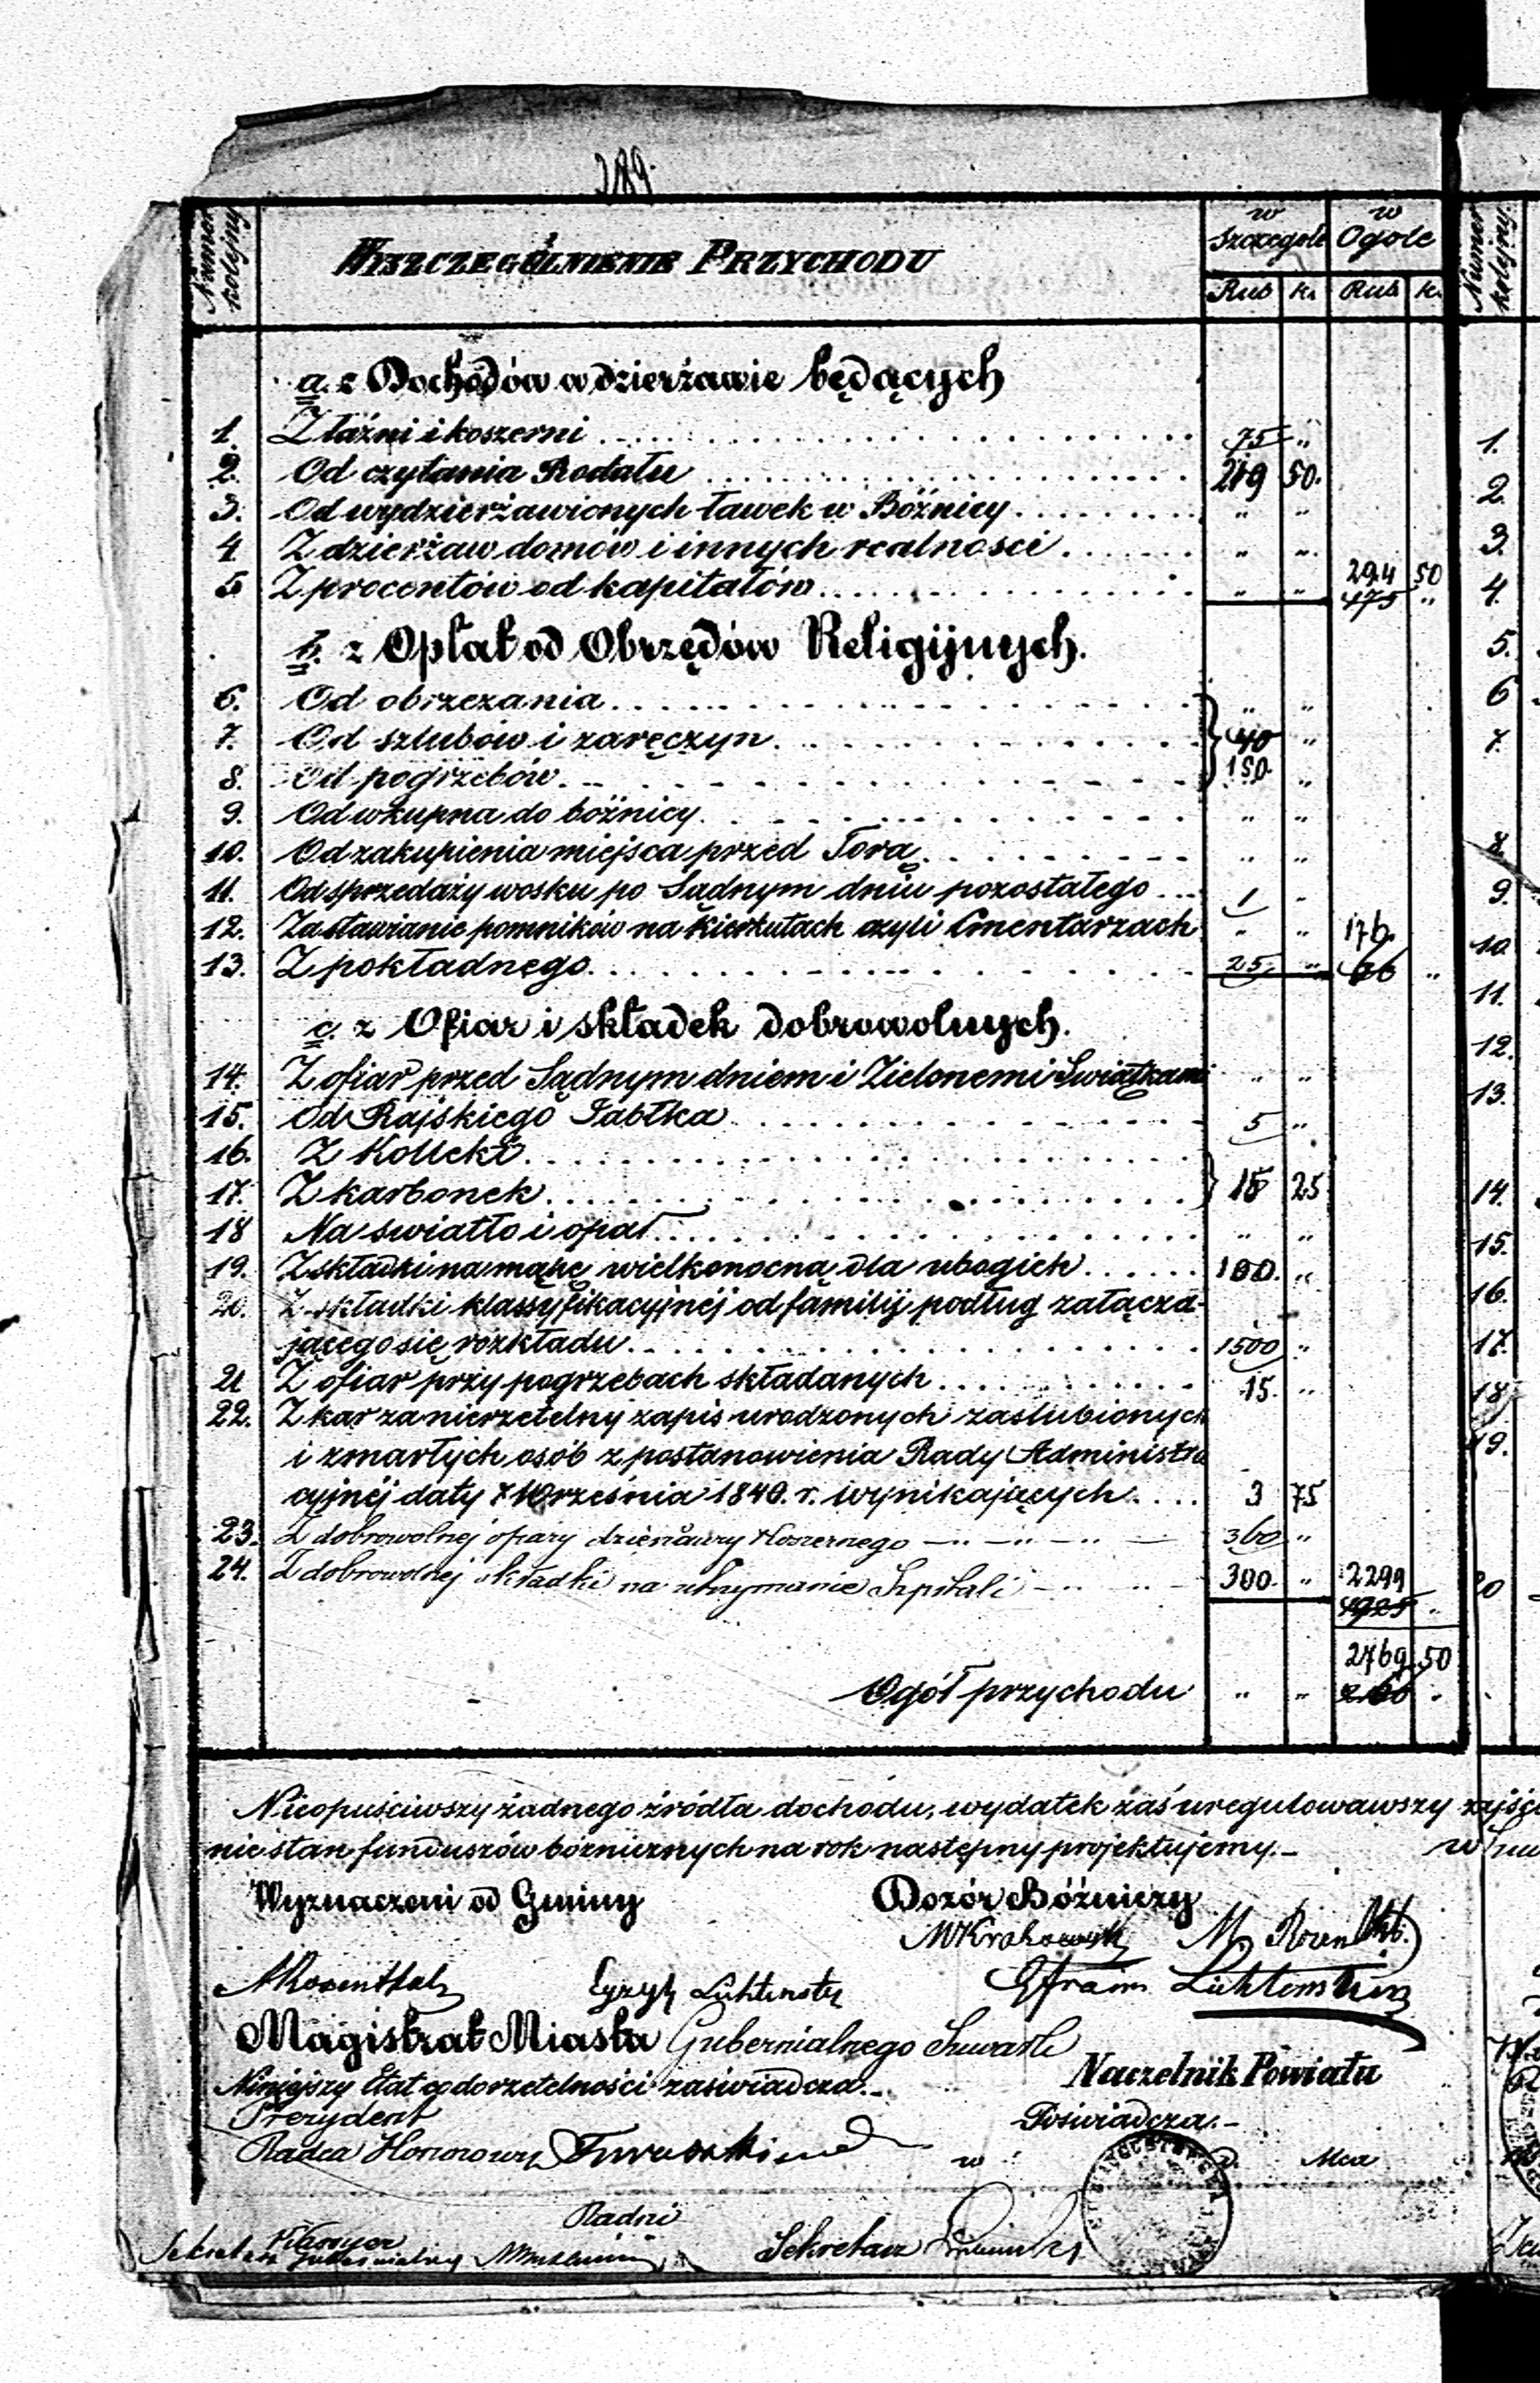 289.
Numer kolejny
WYSZCZEGÓLNIENIE PRZYCHODU
w Szczegole
w Ogole
Rub k. Rub k.
Numer kolejny
a. z Dochodów w dzierżawie będących
1. Z łaźni i koszerni 75 „
2. Od czytania Rodału 219 50.
3. Od wydzierżawionych ławek w Bóżnicy „ „
4. Z dzierżaw domów i innych realności „ „
5 Z procentów od kapitałów „ „ 294 50
175 „
b. z Opłat od Obrzędów Religijnych.
6. Od obrzezania „ „
7. Od szlubów i zaręczyn 40 „
8. Od pogrzebów 150. „
9. Od wkupna do bóżnicy „ „
10. Od zakupienia miejsca przed Torą „ „
11. Od sprzedaży wosku po Sądnym dniu pozostałego 1 „
12. Za stawianie pomników na Kierkutach czyli Cmentarzach „ „ 176.
13. Z pokładnego 25 „ 66 „
c. z Ofiar i składek dobrowolnych.
14. Z ofiar przed Sądnym dniem i Zielonemi Swiątkami „ „
15. Od Rajskiego Jabłka 5 „
16. Z Kollekt
17. Z karbonek 15 25
18 Na swiatło i opał „ „
19. Z składki na mąkę wielkonocną dla ubogich 100. „
20. Z składki klassyfikacyjnéj od familij podług załącza-
jącego się rozkładu 1500 „
21 Z ofiar przy pogrzebach składanych 15. „
22. Z kar za nierzetelny zapis urodzonych zaslubionych
i zmarłych osób z postanowienia Rady Administra
cyjnéj daty 7 Września 1840. r. wynikających 3 75
23. Z dobrowolnej ofiary dzierżawcy Koszernego 360 „
24. Z dobrowolnej składki na utrzymanie Szpitali 300. „ 2299
1925 „
2769 50
Ogół przychodu „ „
Nieopuściwszy żadnego źródła dochodu, wydatek zaś uregulowawszy
nie stan funduszów bóżniczych na rok następny projektujemy.
Wyznaczeni od Gminy
Dozór Bóżniczy
Efraim Lichtenstein
Magistrat Miasta Gubernialnego Suwałk
Naczelnik Powiatu
Niniejszy Etat co do rzetelności zaświadcza.
Poświadcza.
Prezydent
Radca Honorowy
w d. Mca
Radni
Sekretarz
1.
2.
3.
4.
5.
6
7.
8.
9.
10.
11.
12.
13.
14.
15.
16.
17.
18
19.
20